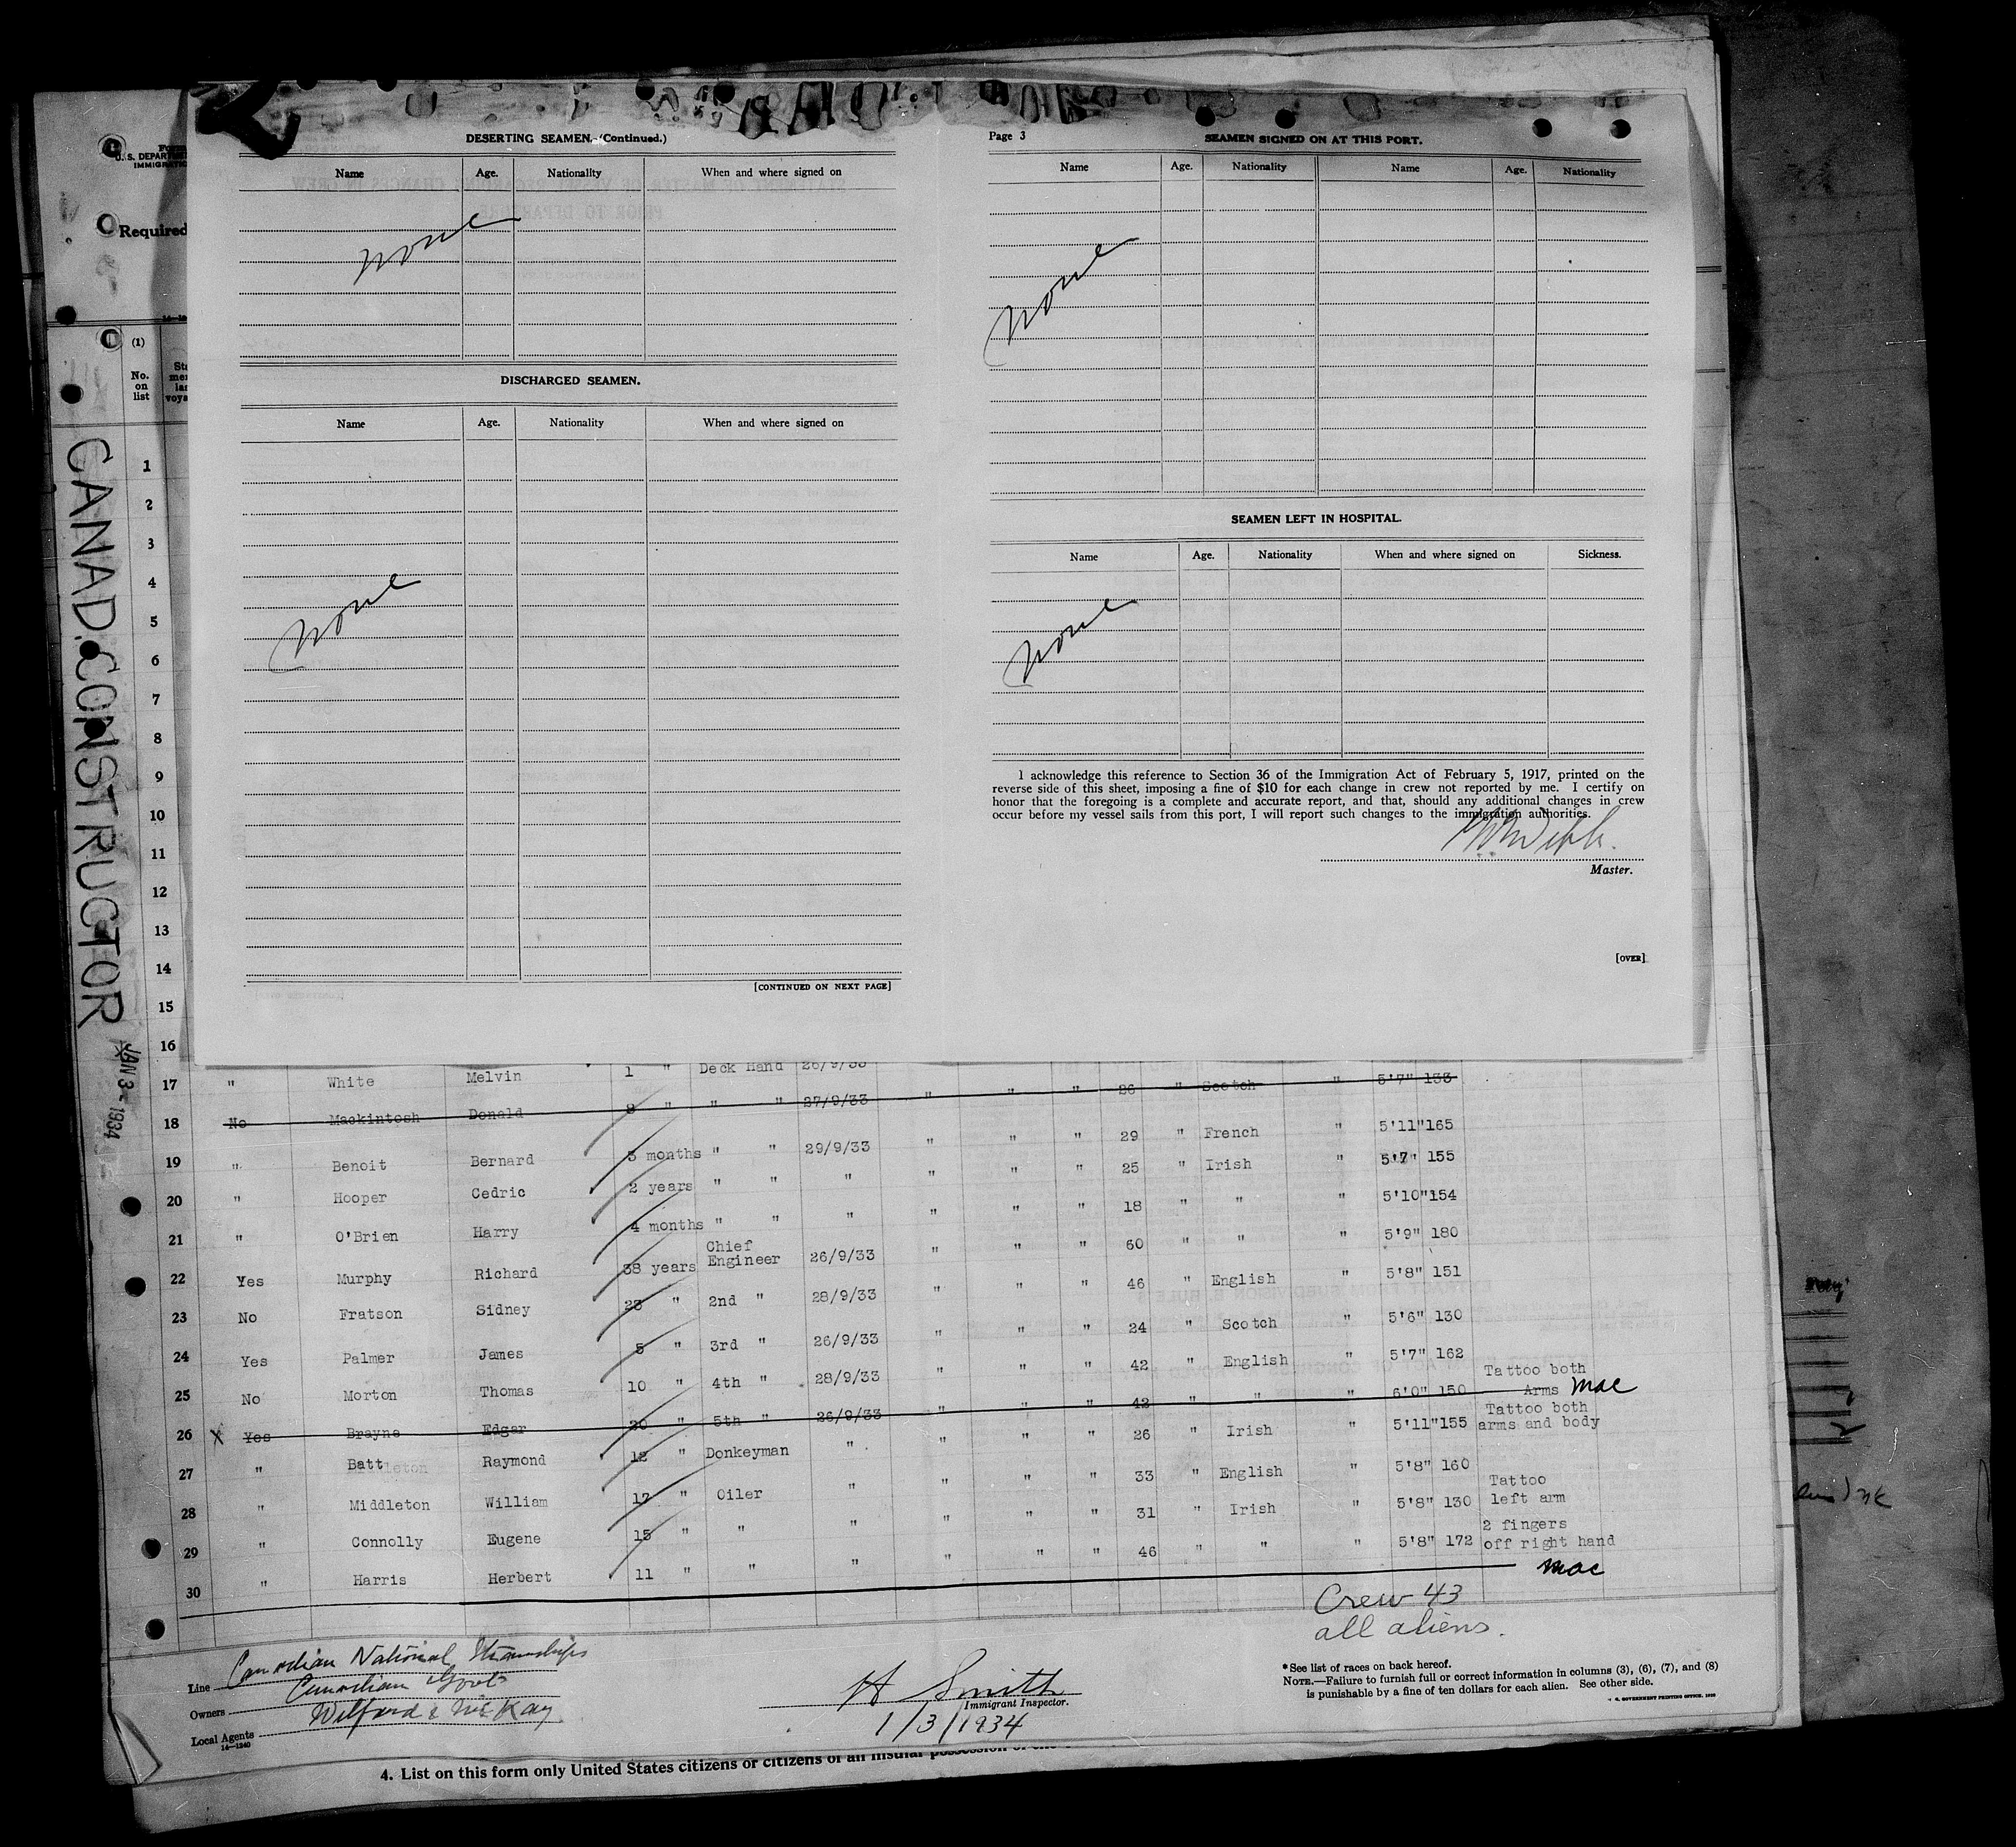 DESERTING SEAMEN.-(Continued.)
Name Age. Nationality When and where signed on
none
DISCHARGED SEAMEN.
Name Age. Nationality When and where signed on
none
[CONTINUED ON NEXT PAGE]
Page 3 SEAMEN SIGNED ON AT THIS PORT.
Name Age. Nationality Name Age. Nationality
none
SEAMEN LEFT IN HOSPITAL.
Name Age. Nationality When and where signed on Sickness.
none
I acknowledge this reference to Section 36 of the Immigration Act of February 5, 1917, printed on the
reverse side of this sheet, imposing a fine of $10 for each change in crew not reported by me. I certify on
honor that the foregoing is a complete and accurate report, and that, should any additional changes in crew
occur before my vessel sails from this port, I will report such changes to the immigration authorities.
Master.
[OVER]
Form
U. S. DEPART
IMMIGRATIO
Required
(1)
No.
on
list
CANAD. CONSTRUCTOR
JAN 3 - 1934
1
2
3
4
5
6
7
8
9
10
11
12
13
14
15
16
17 " White Melvin 1 " Deck Hand 26/9/33 " " " 26 " Scotch " 5'7" 133
18 No Mackintosh Donald 8 " " " 27/9/33 " " " 29 " French " 5'11" 165
19 " Benoit Bernard 3 months " " 29/9/33 " " " 25 " Irish " 5'7" 155
20 " Hooper Cedric 2 years " " " " " " 18 " " " 5'10" 154
21 " O'Brien Harry 4 months " " " " " " 60 " " " 5'9" 180
22 Yes Murphy Richard 38 years Chief Engineer 26/9/33 " " " 46 " English " 5'8" 151
23 No Fratson Sidney 23 " 2nd " 28/9/33 " " " 24 " Scotch " 5'6" 130
24 Yes Palmer James 5 " 3rd " 26/9/33 " " " 42 " English " 5'7" 162
25 No Morton Thomas 10 " 4th " 28/9/33 " " " 42 " " " 6'0" 150 Tattoo both Arms mac
26 X Yes Brayne Edgar 20 " 5th " 26/9/33 " " " 26 " Irish " 5'11" 155 Tattoo both arms and body
27 " Batt Raymond 12 " Donkeyman " " " " 33 " English " 5'8" 160
28 " Middleton William 17 " Oiler " " " " 31 " Irish " 5'8" 130 Tattoo left arm
29 " Connolly Eugene 15 " " " " " " 46 " " " 5'8" 172 2 fingers off right hand
30 " Harris Herbert 11 " " " mac
Crew 43
all aliens.
Line Canadian National Steamships
Owners Canadian Govt
Local Agents Wilford & McKay
14-1240
H Smith
Immigrant Inspector.
1/3/1934
*See list of races on back hereof.
NOTE.—Failure to furnish full or correct information in columns (3), (6), (7), and (8)
is punishable by a fine of ten dollars for each alien. See other side.
4. List on this form only United States citizens or citizens of an insular possession of the